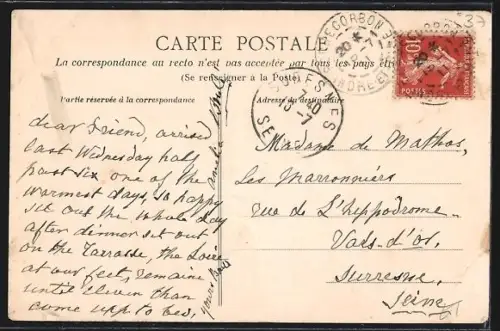 CARTE POSTALE
La correspondance au recto n'est pas acceptée par tous les pays étr
(Se renseigner à la Poste)
Partie réservée à la correspondance
Adresse du destinataire
dear Friend, arrived
last Wednesday half
past six one of the
warmest days, so happy
sit out the whole day
after dinner sit out
on the Terrasse, the Loire
at our feet, remaine
until eleven than
come upp to bed,
Madame de Mathos,
Les Marronniers
rue de L'hyppodrome
Vals-d'or,
Surresne,
Seine
SURESNES
7-40
13-7
SEINE
20
INDRE-ET-
10
POSTES
37